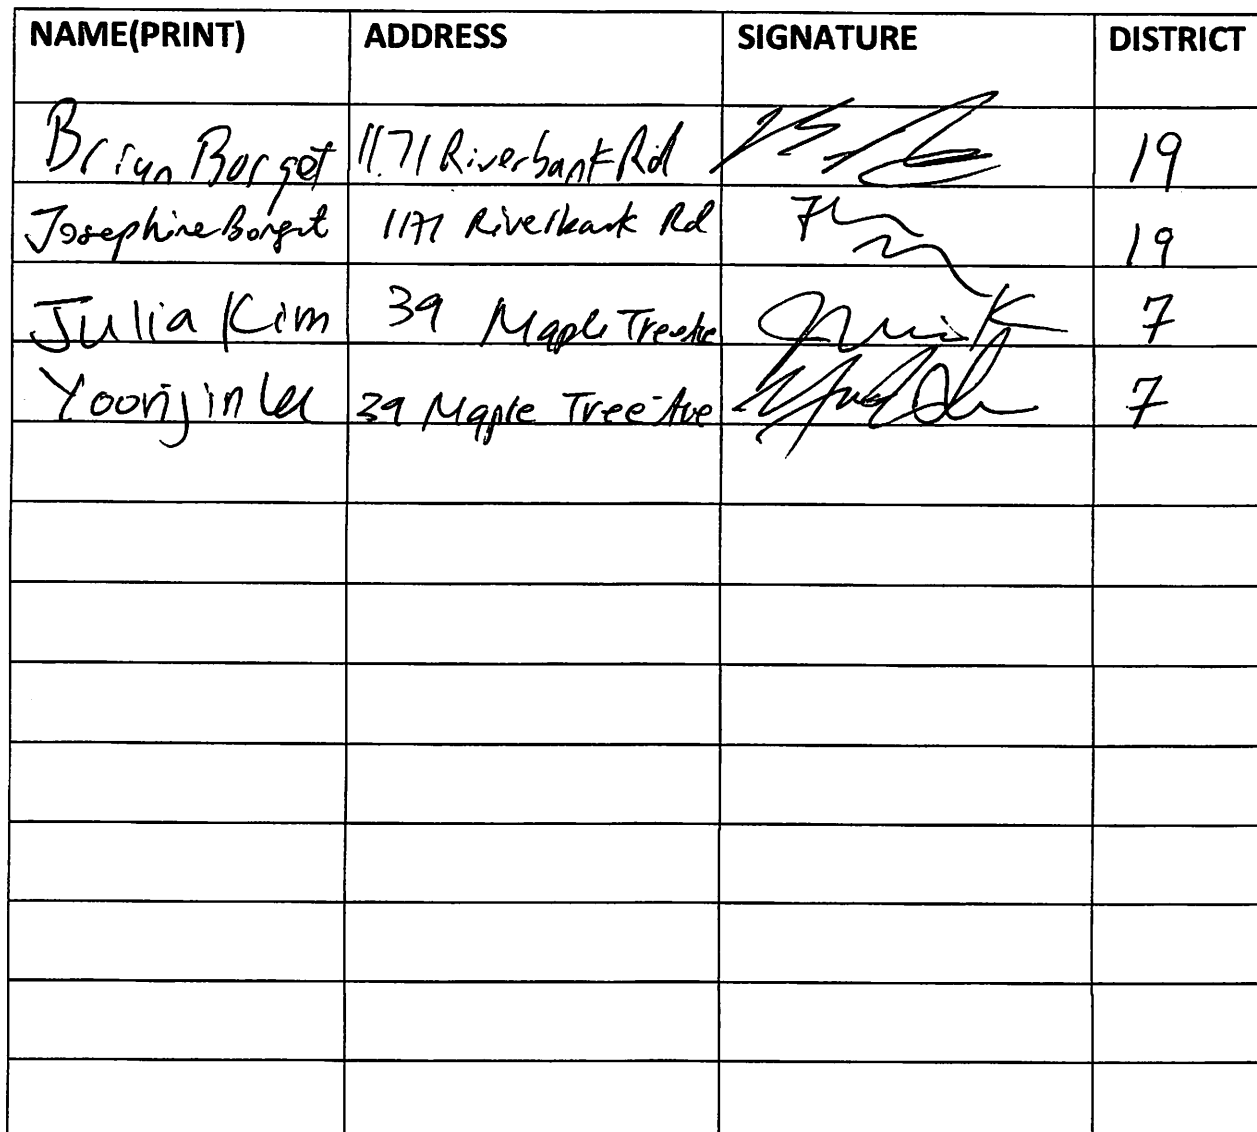 NAME(PRINT) ADDRESS SIGNATURE DISTRICT
Brian Borget 1171 Riverbank Rd 19
Josephine Borget 1171 Riverbank Rd 19
Julia Kim 39 Maple Tree Ave 7
Yoonjin Lee 39 Maple Tree Ave 7